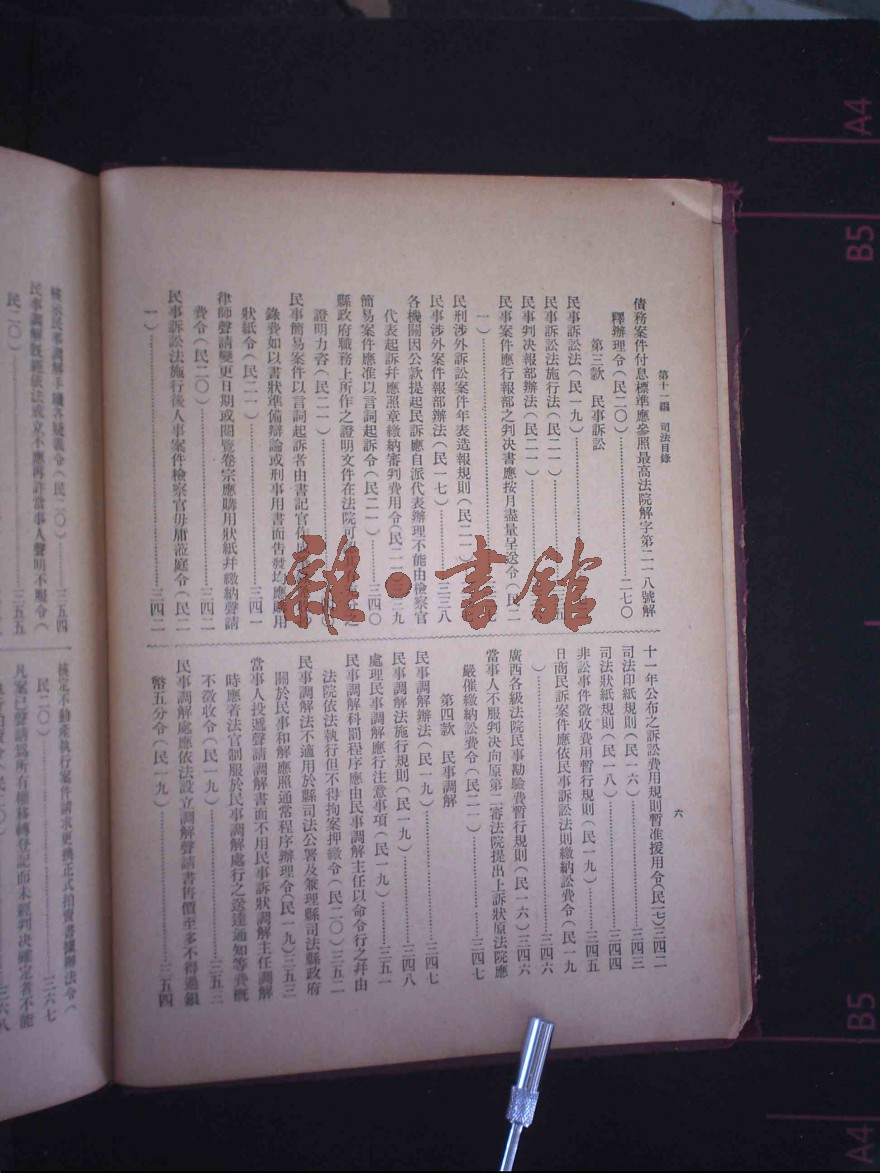 第十一編　司法目錄
六
債務案件付息標準應參照最高法院解字第二一八號解
釋辦理令（民二〇）……二七〇
第三款　民事訴訟
民事訴訟法（民一九）
民事訴訟法施行法（民二一）
民事判決報部辦法（民二一）
民事案件應行報部之判決書應按月盡量呈送令（民二
一）
民刑涉外訴訟案件年表造報規則（民二一）
民事涉外案件報部辦法（民一七）……三三八
各機關因公款提起民訴應自派代表辦理不能由檢察官
代表起訴幷應照章繳納審判費用令（民二一）三三九
簡易案件應准以言詞起訴令（民二一）……三四〇
縣政府職務上所作之證明文件在法院可
證明力咨（民二一）
民事簡易案件以言詞起訴者由書記官
錄費如以書狀準備辯論或刑事用書面吿發均應購用
狀紙令（民二一）……三四一
律師聲請變更日期或閱覽卷宗應購用狀紙幷繳納聲請
費令（民二〇）……三四二
民事訴訟法施行後人事案件檢察官毋庸蒞庭令（民二
一）……三四二
十一年公布之訴訟費用規則暫准援用令（民一七）三四二
司法印紙規則（民一六）……三四三
司法狀紙規則（民一八）……三四四
非訟事件徵收費用暫行規則（民一九）……三四五
日商民訴案件應依民事訴訟法則繳納訟費令（民一九
）……三四六
廣西各級法院民事勘驗費暫行規則（民一六）三四六
當事人不服判決向原第二審法院提出上訴狀原法院應
嚴催繳納訟費令（民二一）……三四七
第四款　民事調解
民事調解辦法（民一九）……三四七
民事調解法施行規則（民一九）……三四八
處理民事調解應行注意事項（民一九）……三五一
民事調解科罰程序應由民事調解主任以命令行之幷由
法院依法執行但不得拘案押繳令（民二〇）三五二
民事調解法不適用於縣司法公署及兼理縣司法縣政府
關於民事和解應照通常程序辦理令（民一九）三五三
當事人投遞聲請調解書面不用民事訴狀調解主任調解
時應着法官制服於民事調解處行之送達通知等費概
不徵收令（民一九）……三五三
民事調解處應依法設立調解聲請書售價至多不得過銀
幣五分令（民一九）……三五四
核示民事調解手續各疑義令（民二〇）……三五四
民事調解既經依法成立不應再許當事人聲明不服令（
民二〇）……三五五
核定不動產執行案件請求更換正式拍賣書據辦法令（
民二〇）……三六七
凡案已聲請爲所有權移轉登記而未經判決確定者不能
……三六八
雜·書館
A4
B5
B5
A4